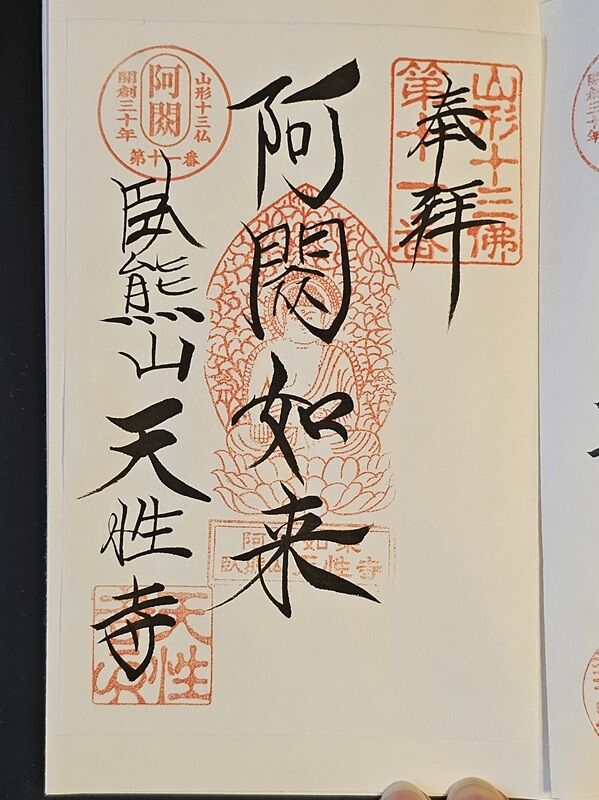 奉拝
山形十三佛
第十一番
阿閦如来
阿閦如来
臥熊山天性寺
山形十三仏
阿閦
開創三十年
第十一番
臥熊山天性寺
天性